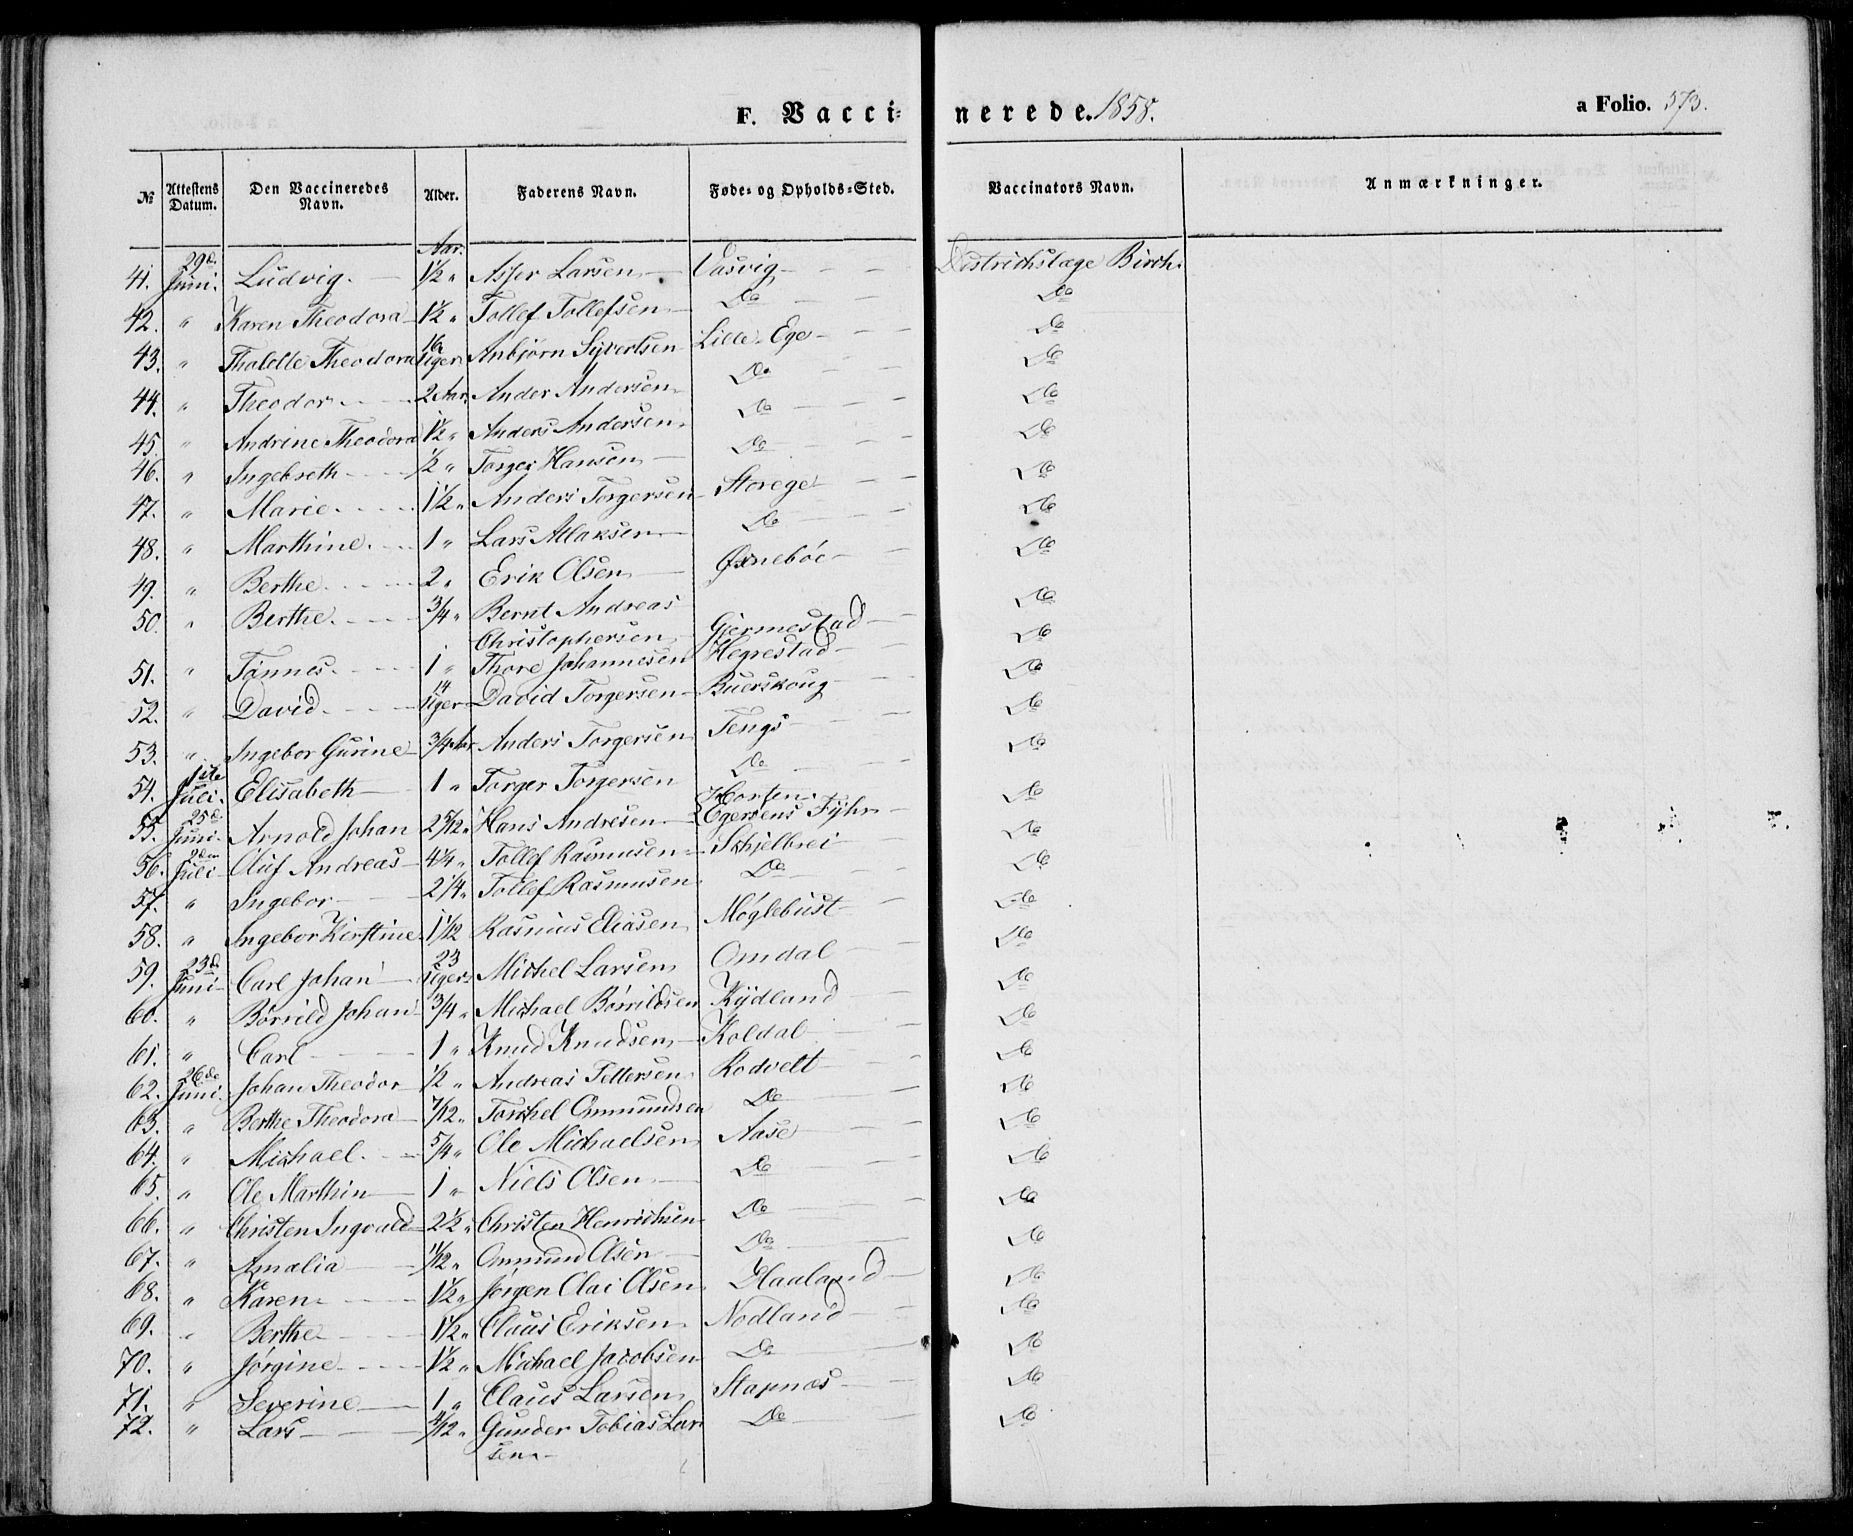 F. Vacci-nerede. 1858. a Folio. 573.
№ Attestens Datum. Den Vaccineredes Navn. Alder. Faderens Navn. Føde- og Opholds-Sted. Vaccinators Navn. Anmærkninger.
41. 29de Juni. Ludvig. Aar. 1½ " Asser Larsen Vasvig Districtslæge Birch.
42. " Karen Theodora 1½ " Tollef Tollefsen Do Do
43. " Thalette Theodora 16 Uger Anbjørn Syvertsen Lille Ege Do
44. " Theodor 2 Aar. Ander Andersen Do Do
45. " Andrine Theodora 1½ " Anders Andersen Do Do
46. " Ingebreth ½ " Torger Hansen Do Do
47. " Marie 1½ " Anders Torgersen Storege Do
48. " Marthine. 1 " Lars Aslaksen Do Do
49. " Berthe 2 " Erik Olsen Øxnebøe Do
50. " Berthe. ¾ " Bernt Andreas
Christophersen Gjermestad Do
51. " Tønnes. 1 " Thore Johannesen Hegrestad Do
52. " David 14 Uger David Torgersen Buerskoug Do
53. " Ingebor Gurine ¾ Aar Anders Torgersen Tengs Do
54. 1ste Juli. Elisabeth 1 " Torger Torgersen Do Do
55. 25de Juni Arnold Johan 2 5/12 " Hans Andresen Horten. Egersens Fyhr Do
56. 2den Juli Oluf Andreas 4¼ " Tollef Rasmusen Schjelbrei Do
57. " Ingebor 2¼ " Tollef Rasmusen Do Do
58. " Ingebor Kirstine 1 1/12 Rasmus Eliasen Møglebust Do
59. 23de Juni Carl Johan 23 Uger Michel Larsen Omdal Do
60. " Børrild Johan ¾ " Michael Børrildsen Kydland Do
61. " Carl 1 " Knud Knudsen Koldal Do
62. 26de Juni. Johan Theodor ½ " Andreas Pettersen Rodvelt Do
63. " Berthe Theodora 7/12 " Torchel Ommundsen Do Do
64. " Michael. 5/4 " Ole Michaelsen Aase Do
65. " Ole Marthin 1 " Niels Olsen Do Do
66. " Christen Ingvald 2½ " Christen Henrichsen Do Do
67. " Amalia 11/12 " Ommund Olsen Do Do
68. " Karen 1½ " Jørgen Olai Olsen Haaland Do
69. " Berthe 1½ " Claus Eriksen Nodland Do
70. " Jørgine 1½ " Michael Jacobsen Do Do
71. " Severine 1 " Claus Larsen Stapnæs Do
72. " Lars /12 " Gunder Tobias Lar
sen Do Do